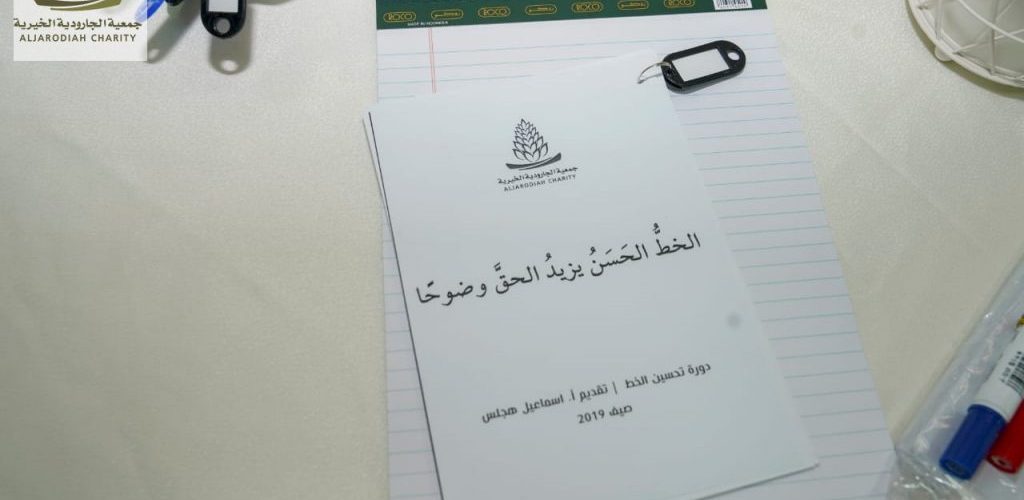 جمعية الجارودية الخيرية
ALJARODIAH CHARITY
ROCO
ROCO
ROCO
ROCO
MADE IN INDONESIA
جمعية الجارودية الخيرية
ALJARODIAH CHARITY
الخطُّ الحَسَنُ يزيدُ الحقَّ وضوحًا
دورة تحسين الخط | تقديم أ. اسماعيل هجلس
صيف 2019